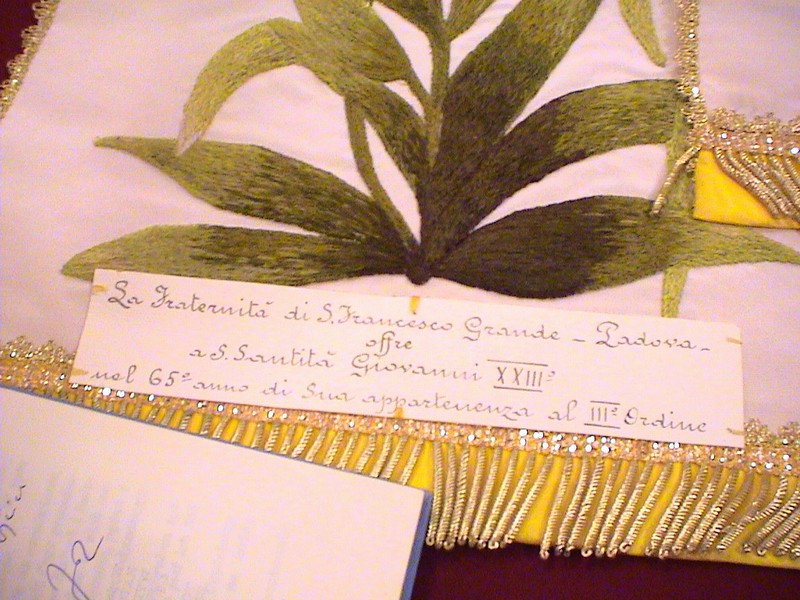 La Fraternità di S. Francesco Grande - Padova -
offre
a S. Santità Giovanni XXIII°
nel 65° anno di Sua appartenenza al III° Ordine